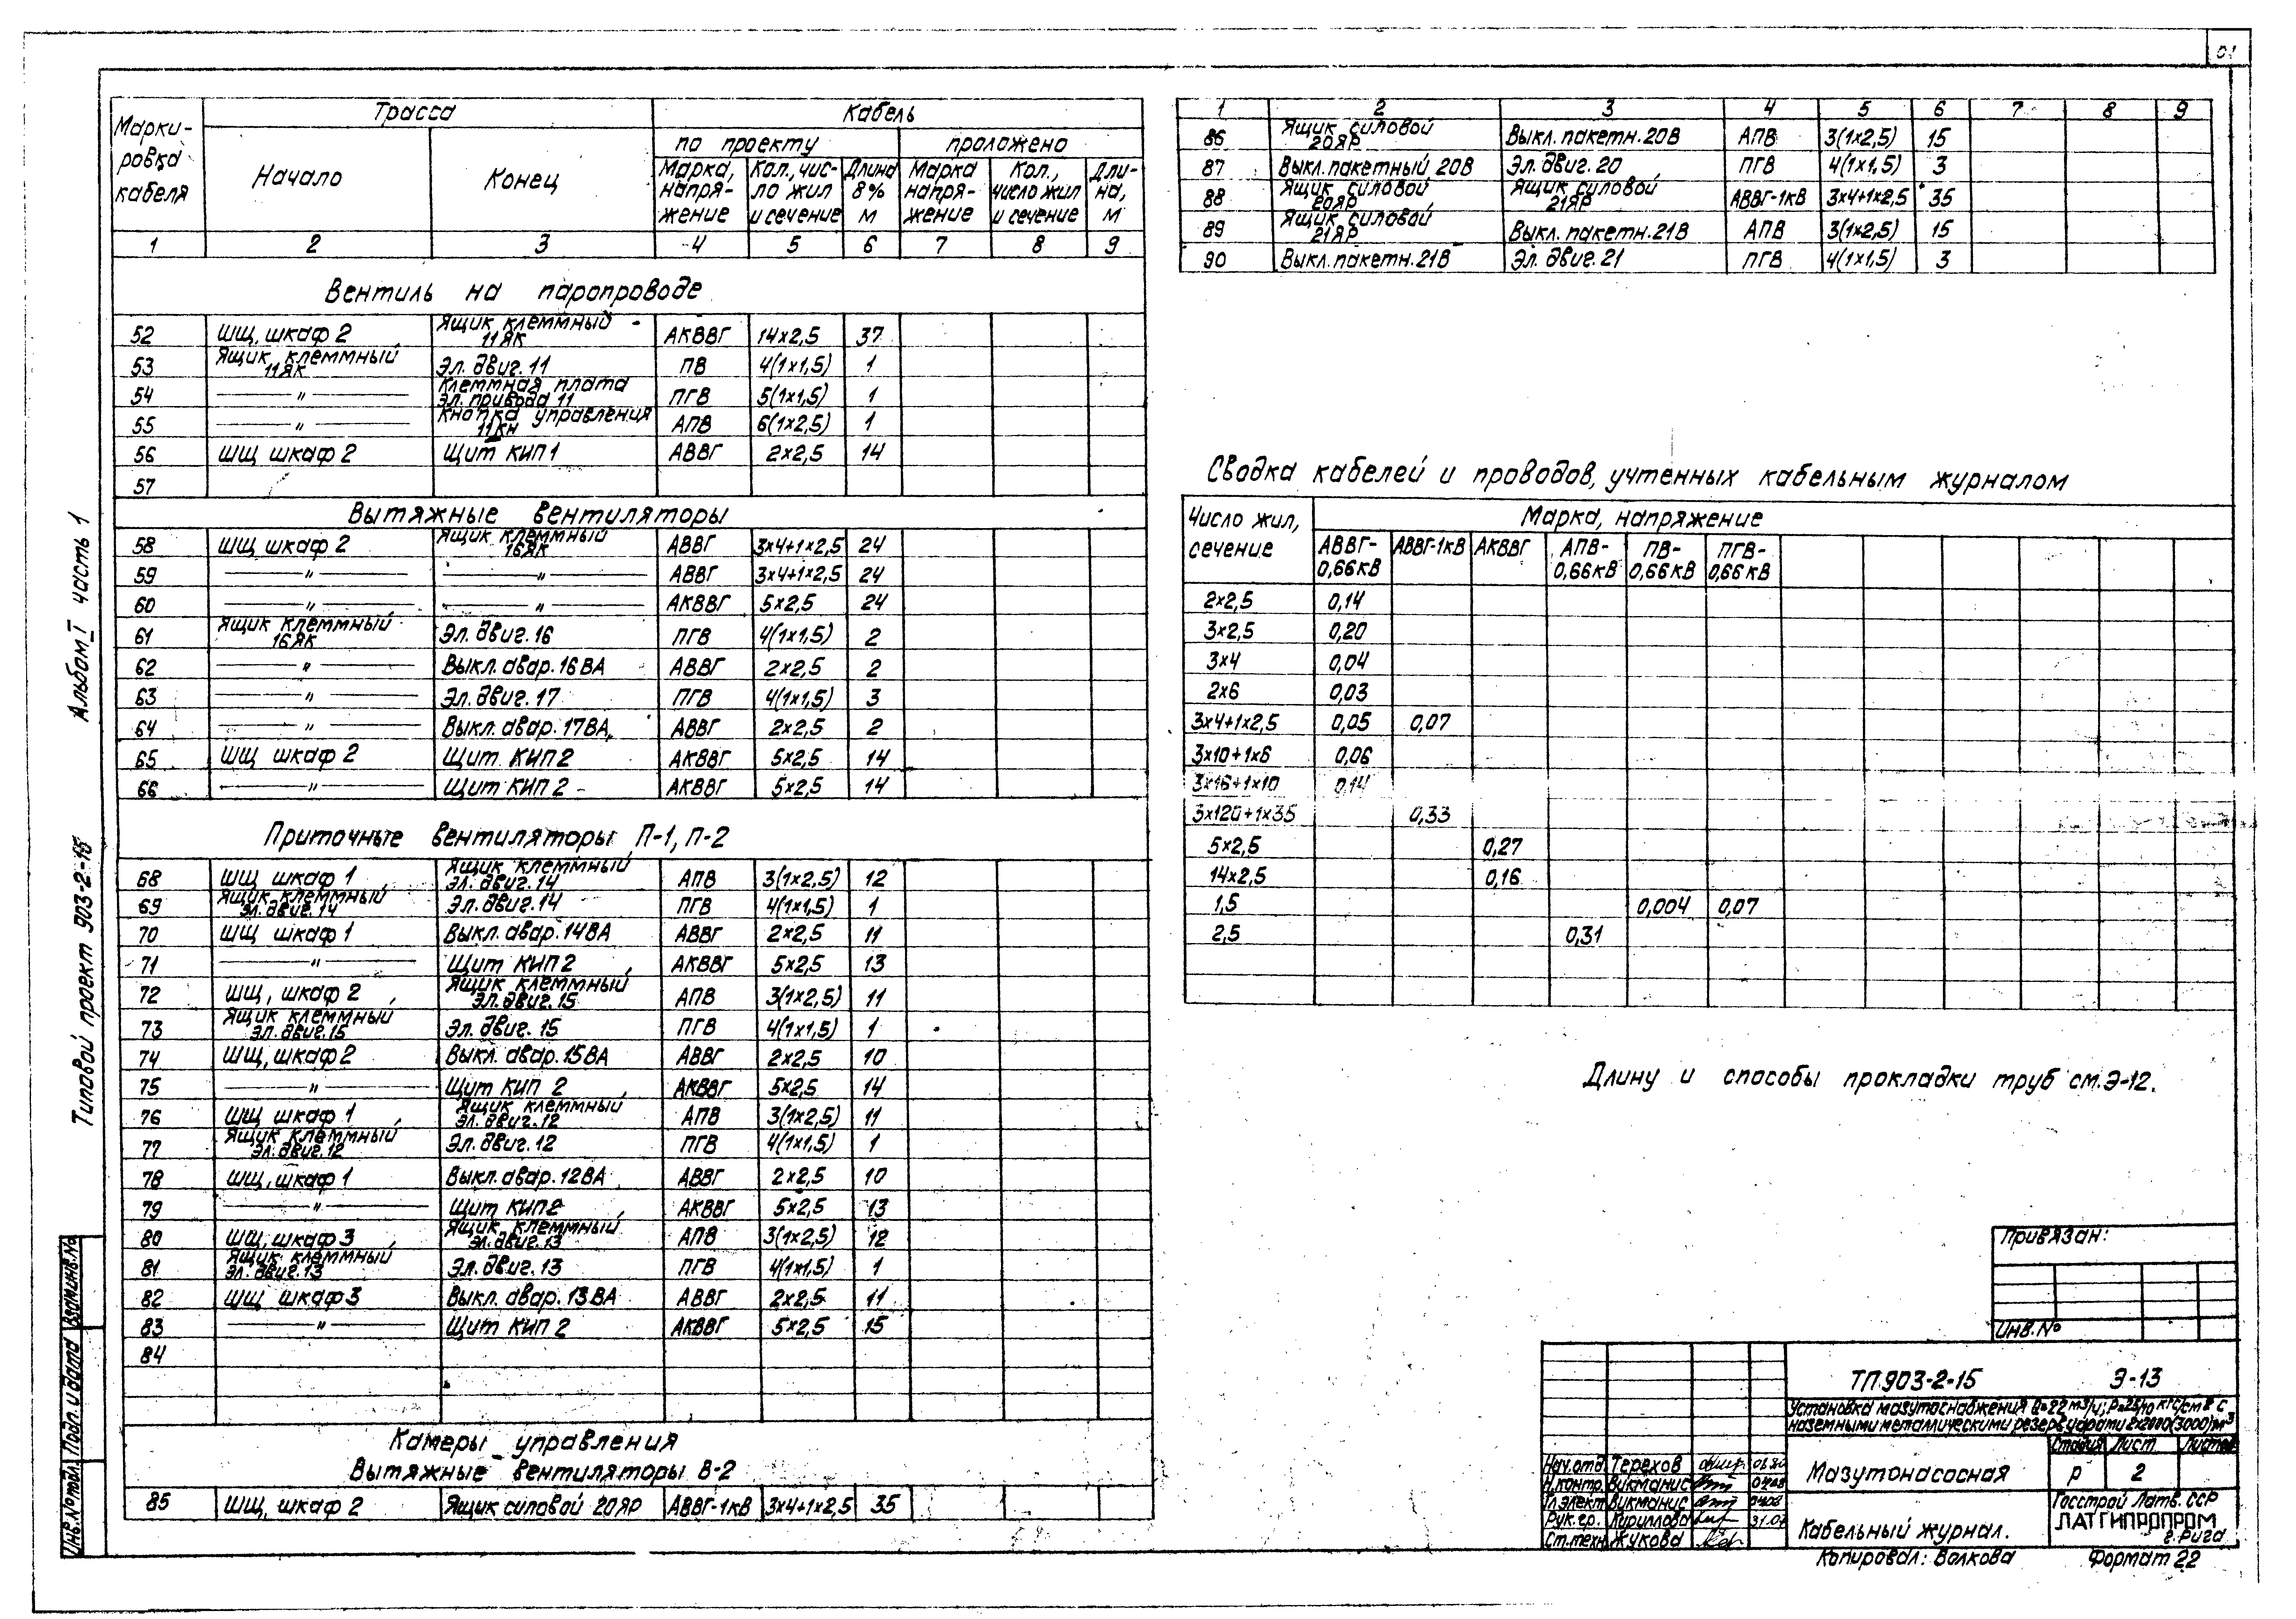 01
Марки-ровка кабеля | Трасса | Кабель
Начало | Конец | по проекту | проложено
Марка, напря-жение | Кол., чис-ло жил и сечение | Длина 8% м | Марка напря-жение | Кол., число жил и сечение | Дли-на, м
1 | 2 | 3 | 4 | 5 | 6 | 7 | 8 | 9
Вентиль на паропроводе
52 | ШЩ, шкаф 2 | Ящик клеммный 11ЯК | АКВВГ | 14х2,5 | 37
53 | Ящик клеммный 11ЯК | Эл. двиг. 11 | ПВ | 4(1х1,5) | 1
54 | — " — | Клеммная плата эл. привода 11 | ПГВ | 5(1х1,5) | 1
55 | — " — | Кнопка управления 11КН | АПВ | 6(1х2,5) | 1
56 | ШЩ шкаф 2 | Щит КИП 1 | АВВГ | 2х2,5 | 14
57
Вытяжные вентиляторы
58 | ШЩ шкаф 2 | Ящик клеммный 16ЯК | АВВГ | 3х4+1х2,5 | 24
59 | — " — | — " — | АВВГ | 3х4+1х2,5 | 24
60 | — " — | — " — | АКВВГ | 5х2,5 | 24
61 | Ящик клеммный 16ЯК | Эл. двиг. 16 | ПГВ | 4(1х1,5) | 2
62 | — " — | Выкл. авар. 16ВА | АВВГ | 2х2,5 | 2
63 | — " — | Эл. двиг. 17 | ПГВ | 4(1х1,5) | 3
64 | — " — | Выкл. авар. 17ВА | АВВГ | 2х2,5 | 2
65 | ШЩ шкаф 2 | Щит КИП 2 | АКВВГ | 5х2,5 | 14
66 | — " — | Щит КИП 2 | АКВВГ | 5х2,5 | 14
Приточные вентиляторы П-1, П-2
68 | ШЩ шкаф 1 | Ящик клеммный эл. двиг. 14 | АПВ | 3(1х2,5) | 12
69 | Ящик клеммный эл. двиг. 14 | Эл. двиг. 14 | ПГВ | 4(1х1,5) | 1
70 | ШЩ шкаф 1 | Выкл. авар. 14ВА | АВВГ | 2х2,5 | 11
71 | — " — | Щит КИП 2 | АКВВГ | 5х2,5 | 13
72 | ШЩ, шкаф 2 | Ящик клеммный эл. двиг. 15 | АПВ | 3(1х2,5) | 11
73 | Ящик клеммный эл. двиг. 15 | Эл. двиг. 15 | ПГВ | 4(1х1,5) | 1
74 | ШЩ, шкаф 2 | Выкл. авар. 15ВА | АВВГ | 2х2,5 | 10
75 | — " — | Щит КИП 2 | АКВВГ | 5х2,5 | 14
76 | ШЩ шкаф 1 | Ящик клеммный эл. двиг. 12 | АПВ | 3(1х2,5) | 11
77 | Ящик клеммный эл. двиг. 12 | Эл. двиг. 12 | ПГВ | 4(1х1,5) | 1
78 | ШЩ, шкаф 1 | Выкл. авар. 12ВА | АВВГ | 2х2,5 | 10
79 | — " — | Щит КИП 2 | АКВВГ | 5х2,5 | 13
80 | ШЩ, шкаф 3 | Ящик клеммный эл. двиг. 13 | АПВ | 3(1х2,5) | 12
81 | Ящик клеммный эл. двиг. 13 | Эл. двиг. 13 | ПГВ | 4(1х1,5) | 1
82 | ШЩ шкаф 3 | Выкл. авар. 13ВА | АВВГ | 2х2,5 | 11
83 | — " — | Щит КИП 2 | АКВВГ | 5х2,5 | 15
84
Камеры управления
Вытяжные вентиляторы В-2
85 | ШЩ, шкаф 2 | Ящик силовой 20ЯР | АВВГ-1кВ | 3х4+1х2,5 | 35
1 | 2 | 3 | 4 | 5 | 6 | 7 | 8 | 9
86 | Ящик силовой 20ЯР | Выкл. пакетн. 20В | АПВ | 3(1х2,5) | 15
87 | Выкл. пакетный 20В | Эл. двиг. 20 | ПГВ | 4(1х1,5) | 3
88 | Ящик силовой 20ЯР | Ящик силовой 21ЯР | АВВГ-1кВ | 3х4+1х2,5 | 35
89 | Ящик силовой 21ЯР | Выкл. пакетн. 21В | АПВ | 3(1х2,5) | 15
90 | Выкл. пакетн. 21В | Эл. двиг. 21 | ПГВ | 4(1х1,5) | 3
Сводка кабелей и проводов, учтенных кабельным журналом
Число жил, сечение | Марка, напряжение
АВВГ-0,66кВ | АВВГ-1кВ | АКВВГ | АПВ-0,66кВ | ПВ-0,66кВ | ПГВ-0,66кВ
2х2,5 | 0,14
3х2,5 | 0,20
3х4 | 0,04
2х6 | 0,03
3х4+1х2,5 | 0,05 | 0,07
3х10+1х6 | 0,06
3х16+1х10 | 0,14
3х120+1х35 | 0,33
5х2,5 | 0,27
14х2,5 | 0,16
1,5 | 0,004 | 0,07
2,5 | 0,31
Длину и способы прокладки труб см. Э-12.
Привязан:
Инв. №
ТП 903-2-15 Э-13
Установка мазутоснабжения Q=22 м3/ч; Р=25/10 кгс/см2 с
наземными металлическими резервуарами 2х2000(3000)м3
Мазутонасосная
Стадия | Лист | Листов
Р | 2
Кабельный журнал.
Госстрой Латв. ССР
ЛАТГИПРОПРОМ
г. Рига
Нач. отд. Терехов
Н. контр. Викманис
Гл. элект. Викманис
Рук. гр. Кириллова 31.07
Ст. техн. Жукова
Копировал: Волкова Формат 22
Типовой проект 903-2-15 Альбом I часть 1
Инв. № подл. Подп. и дата Взам. инв. №